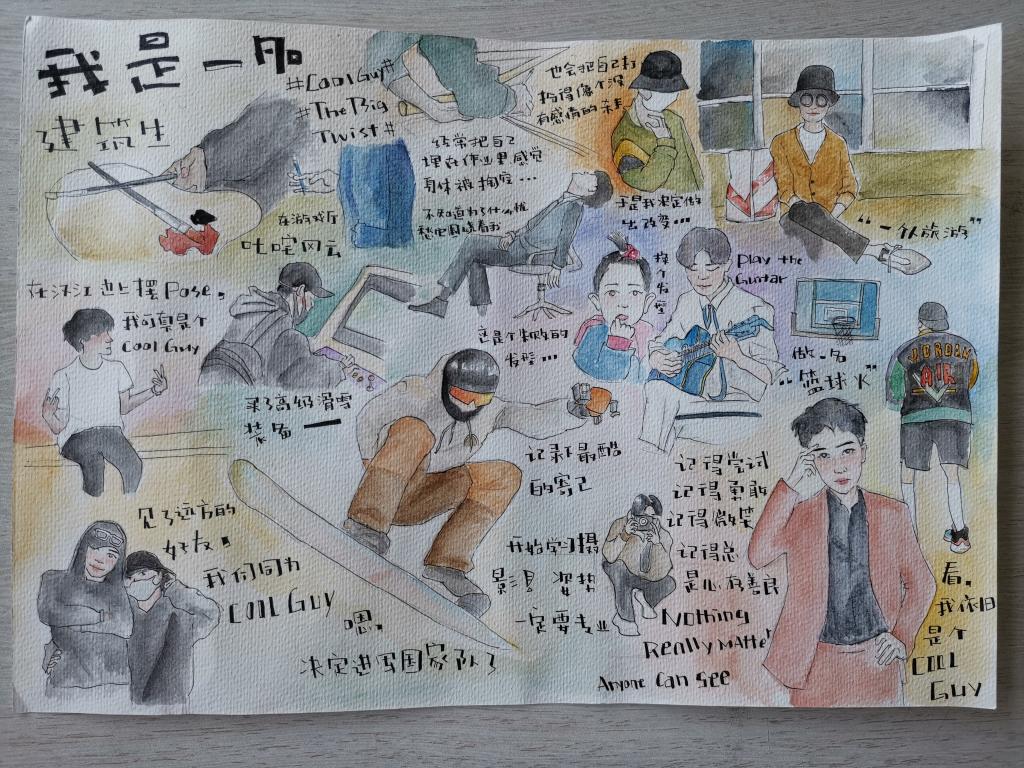 我是一名
建筑生
#Cool Guy#
#The Big
Twist#
经常把自己
埋在作业里感觉
身体被掏空...
不知道为了什么忧
愁它围绕着我
也会把自己打
扮得像个没
有感情的杀手
于是我决定做
出改变...
“一人旅游”
在游戏厅
叱咤风云
在汉江边上摆Pose,
我可真是个
Cool Guy
换个发型
这是个失败的
发型...
Play the
Guitar
做一名
“篮球火”
JORDAN
AIR
买了高级滑雪
装备一
记录下最酷
的寄己
见了远方的
好友,
我们同为
COOL GUY
嗯,
决定进军国家队了
开始学习摄
影 姿势
一定要专业
记得尝试
记得勇敢
记得微笑
记得总
是心存善良
Nothing
Really Matter
Anyone Can See
看,
我依旧
是个
COOL
Guy